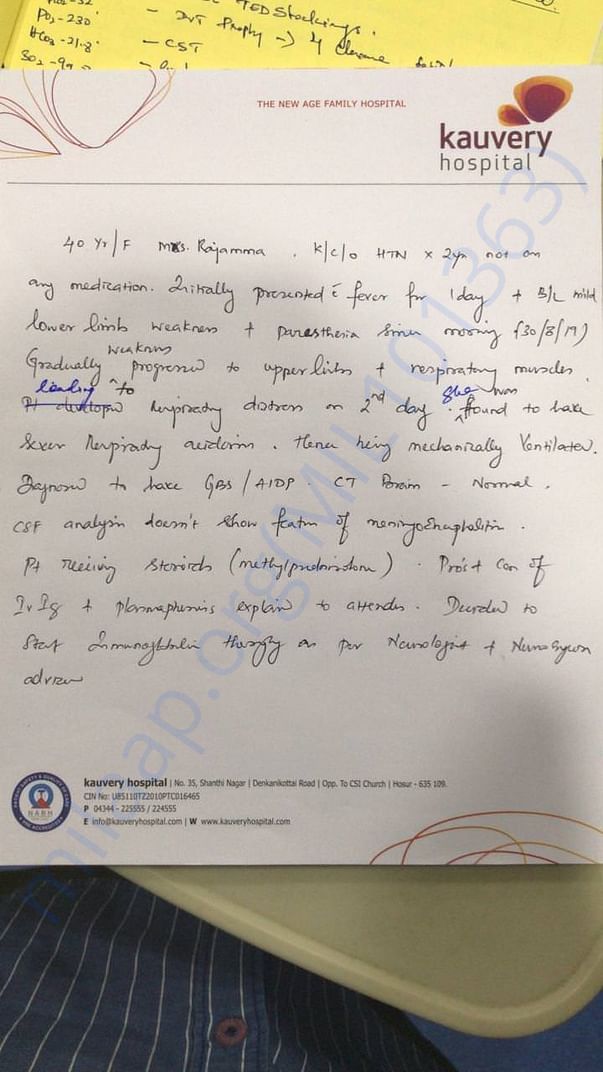 PO2-230
HCO3-21.8
TED Stockings.
- DVT Prophy → Clexane
- CST
THE NEW AGE FAMILY HOSPITAL
kauvery
hospital
40 Yr/F Mrs. Rajamma . K/C/O HTN x 2yr not on
any medication. Initially presented c̄ fever for 1day + B/L mild
lower limb weakness + paresthesia since morning (30/8/19)
Gradually weakness progressed to upper limbs + respiratory muscles
Pt developed leading to Respiratory distress on 2nd day. She was found to have
severe Respiratory acidosis. Hence being mechanically Ventilated.
Diagnosed to have GBS/AIDP. CT Brain - Normal.
CSF analysis doesn't show featrs of meningoencephalitis.
Pt receiving steroids (methylprednisolone). Pros + Con of
IvIg + plasmapheresis explain to attender. Decided to
start Immunoglobulin therapy as per Neurologist + Neurosurgeon
advise
milaap.org(MIL101363)
NABH
kauvery hospital | No. 35, Shanthi Nagar | Denkanikottai Road | Opp. To CSI Church | Hosur - 635 109.
CIN No: U85110TZ2010PTC016465
P 04344 - 225555 / 224555
E info@kauveryhospital.com | W www.kauveryhospital.com